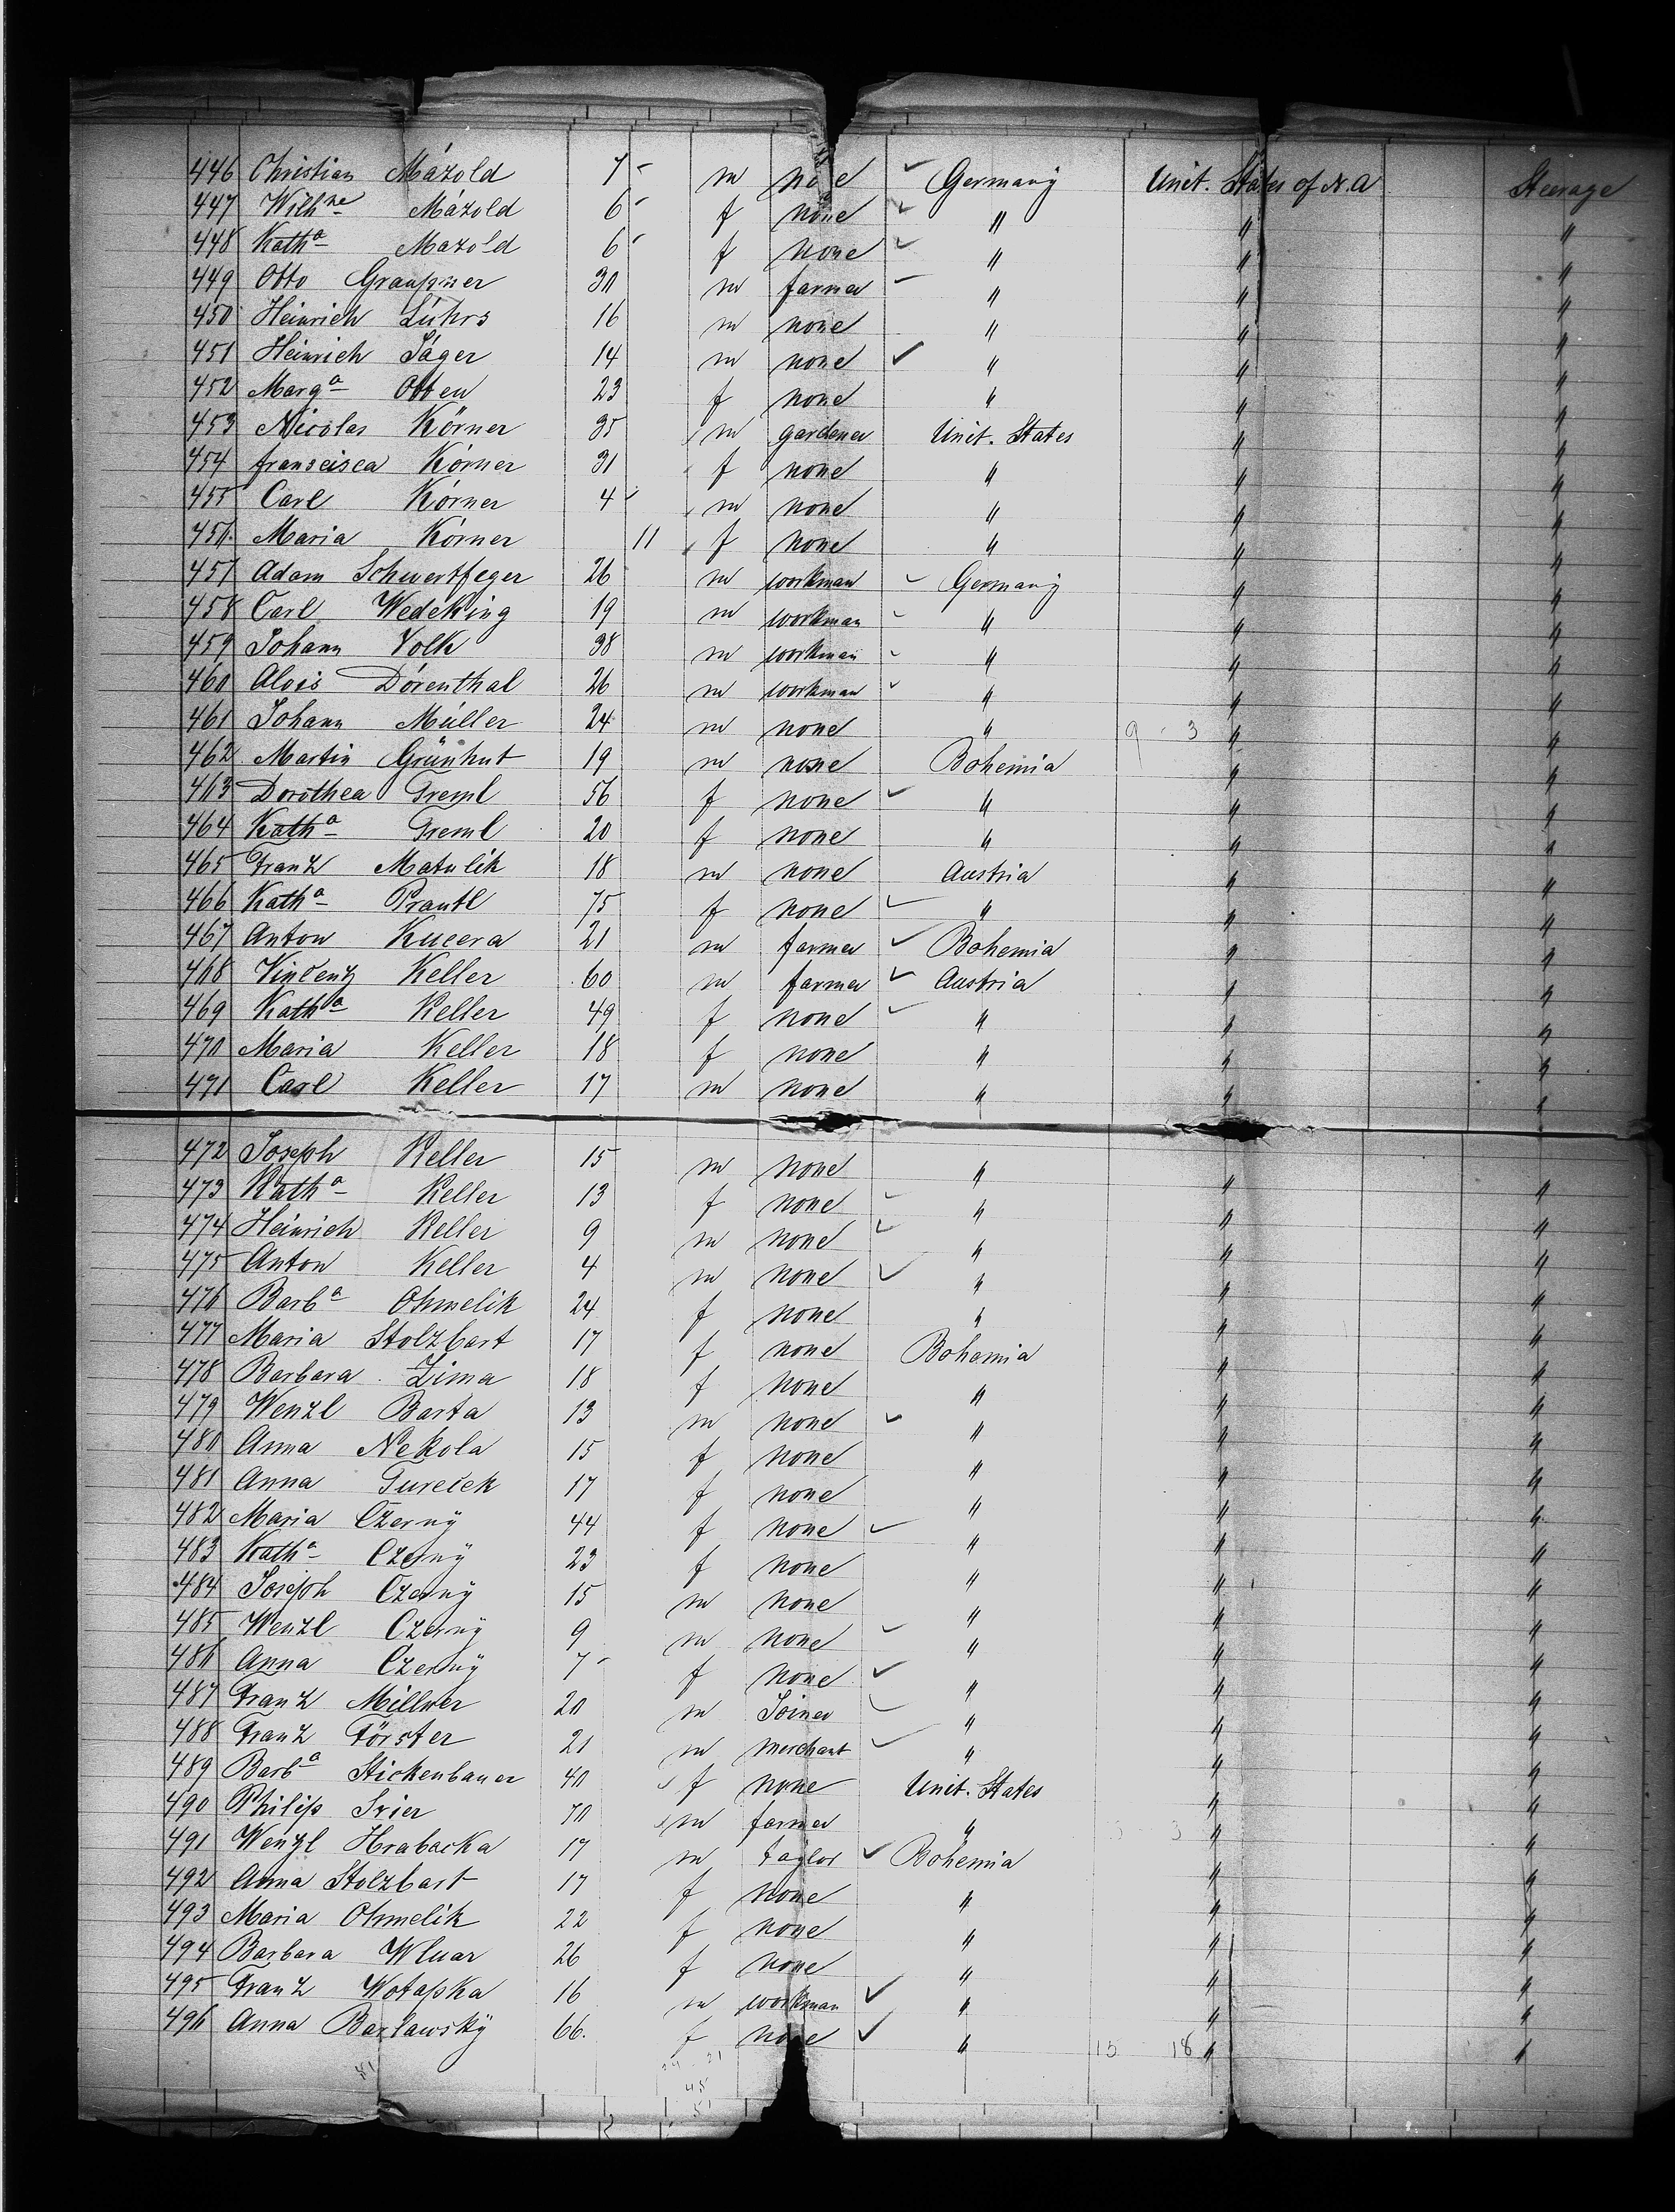 446 Christian Mázold 7 - m none Germany Unit. States of N. A Steerage
447 Wilhne Mázold 6 - f none " " "
448 Katha Mazold 6 - f none " " "
449 Otto Graupner 30 m farmer " " "
450 Heinrich Lührs 16 m none " " "
451 Heinrich Jäger 14 m none " " "
452 Marga Otten 23 f none " " "
453 Nicolas Körner 35 m gardener Unit. States " "
454 franscisca Körner 31 f none " " "
455 Carl Körner 4 m none " " "
456. Maria Körner 11 f none " " "
457 Adam Schwertfeger 26 m workman Germany " "
458 Carl Wedeking 19 m workman " " "
459 Johann Volk 38 m workman " " "
460 Alois Dörenthal 26 m workman " " "
461 Johann Müller 24 m none " 9 - 3 " "
462 Martin Grünhut 19 m none Bohemia " "
463 Dorothea Treml 56 f none " " "
464 Katha Treml 20 f none " " "
465 Franz Matulik 18 m none Austria " "
466 Katha Prantl 75 f none " " "
467 Anton Kucera 21 m farmer Bohemia " "
468 Vincenz Keller 60 m farmer Austria " "
469 Katha Keller 49 f none " " "
470 Maria Keller 18 f none " " "
471 Carl Keller 17 m none " " "
472 Joseph Keller 15 m none " " "
473 Katha Keller 13 f none " " "
474 Heinrich Keller 9 m none " " "
475 Anton Keller 4 m none " " "
476 Barba Ohmelik 24 f none " " "
477 Maria Stolzbart 17 f none Bohemia " "
478 Barbara Zima 18 f none " " "
479 Wenzl Barta 13 m none " " "
480 Anna Nekola 15 f none " " "
481 Anna Turecek 17 f none " " "
482 Maria Czerny 44 f none " " "
483 Katha Czerny 23 f none " " "
484 Joseph Czerny 15 m none " " "
485 Wenzl Czerny 9 m none " " "
486 Anna Czerny 7 - f none " " "
487 Franz Millner 20 m Joiner " " "
488 Franz Förster 21 m merchant " " "
489 Barba Stickenbauer 40 f none Unit. States " "
490 Philip Srier 70 m farmer " " "
491 Wenzl Hrabacka 17 m taylor Bohemia " "
492 Anna Stolzbart 17 f none " " "
493 Maria Ohmelik 22 f none " " "
494 Barbara Wluar 26 f none " " "
495 Franz Wotapka 16 m workman " " "
496 Anna Barlawsky 66. f none " 15 18 " "
81 24 - 21
45
51